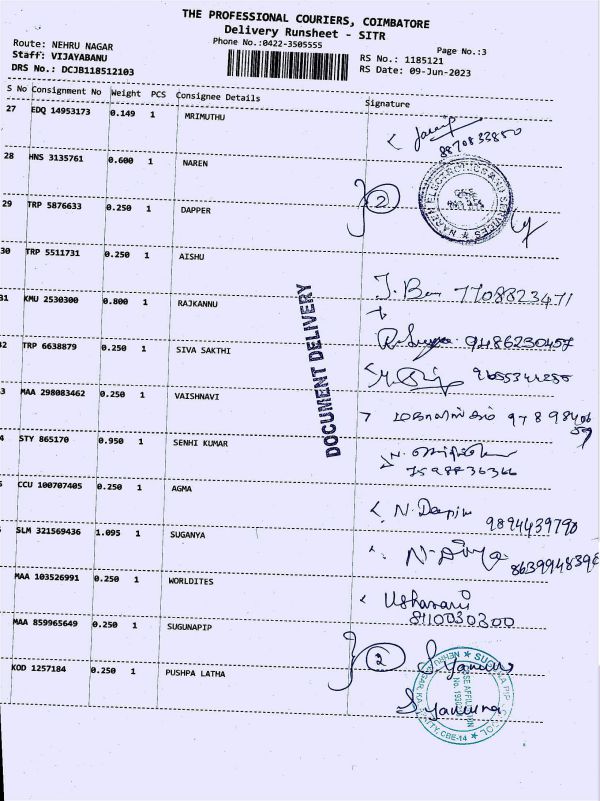 THE PROFESSIONAL COURIERS, COIMBATORE
Delivery Runsheet - SITR
Phone No.:0422-3505555
Page No.:3
Route: NEHRU NAGAR
Staff: VIJAYABANU
DRS No.: DCJB118512103
RS No.: 1185121
RS Date: 09-Jun-2023
S No Consignment No Weight PCS Consignee Details Signature
27 EDQ 14953173 0.149 1 MRIMUTHU
8870833850
28 HNS 3135761 0.600 1 NAREN
2
NAREN ELECTRONICS SERVICES
29 TRP 5876633 0.250 1 DAPPER
30 TRP 5511731 0.250 1 AISHU
7708823471
31 KMU 2530300 0.800 1 RAJKANNU
9486230457
32 TRP 6638879 0.250 1 SIVA SAKTHI
DOCUMENT DELIVERY
3 MAA 298083462 0.250 1 VAISHNAVI
4 STY 865170 0.950 1 SENHI KUMAR
CCU 100707405 0.250 1 AGMA
9894439790
SLM 321569436 1.095 1 SUGANYA
MAA 103526991 0.250 1 WORLDITES
Usharani
8110030300
MAA 859965649 0.250 1 SUGUNAPIP
2
S. Yamuna
KOD 1257184 0.250 1 PUSHPA LATHA
S. Yamuna
CBE-14